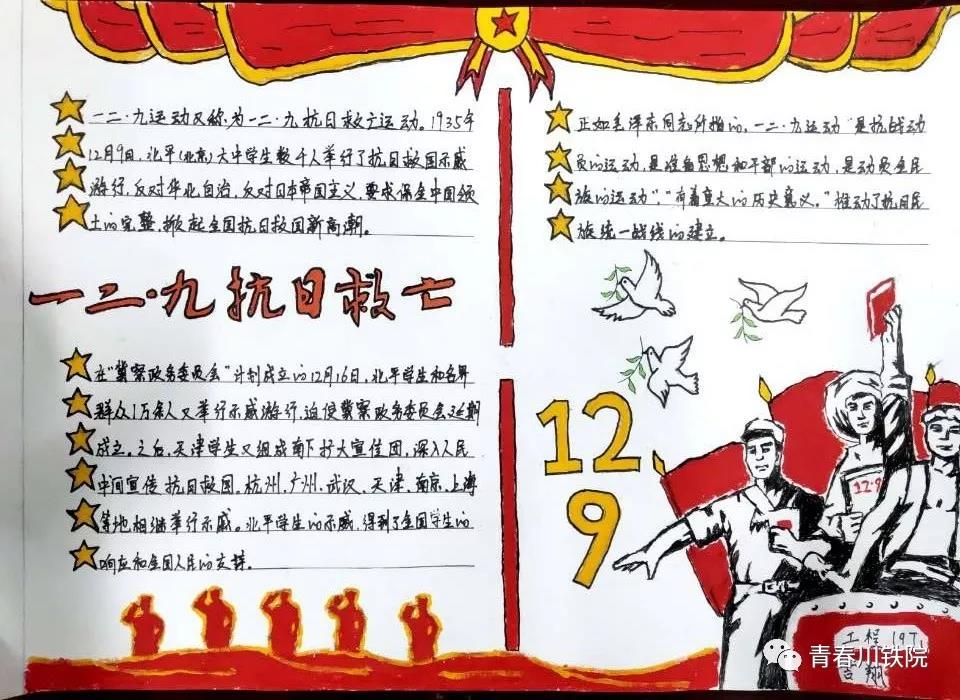 一二·九运动又称为一二·九抗日救亡运动。1935年
12月9日,北平(北京)大中学生数千人举行了抗日救国示威
游行,反对华北自治,反对日本帝国主义,要求保全中国领
土的完整,掀起全国抗日救国新高潮。
一二·九抗日救亡
在“冀察政务委员会”计划成立的12月16日,北平学生和各界
群众1万余人又举行示威游行,迫使冀察政务委员会延期
成立。之后,天津学生又组成南下扩大宣传团,深入人民
中间宣传抗日救国。杭州、广州、武汉、天津、南京、上海
等地相继举行示威。北平学生的示威,得到了全国学生的
响应和全国人民的支持。
正如毛泽东同志所指的,一二·九运动“是抗战动
员的运动,是准备思想和干部的运动,是动员全民
族的运动”,“有着重大的历史意义。”推动了抗日民
族统一战线的建立。
12
9
12·9
工程19T1
吉翔
青春川铁院